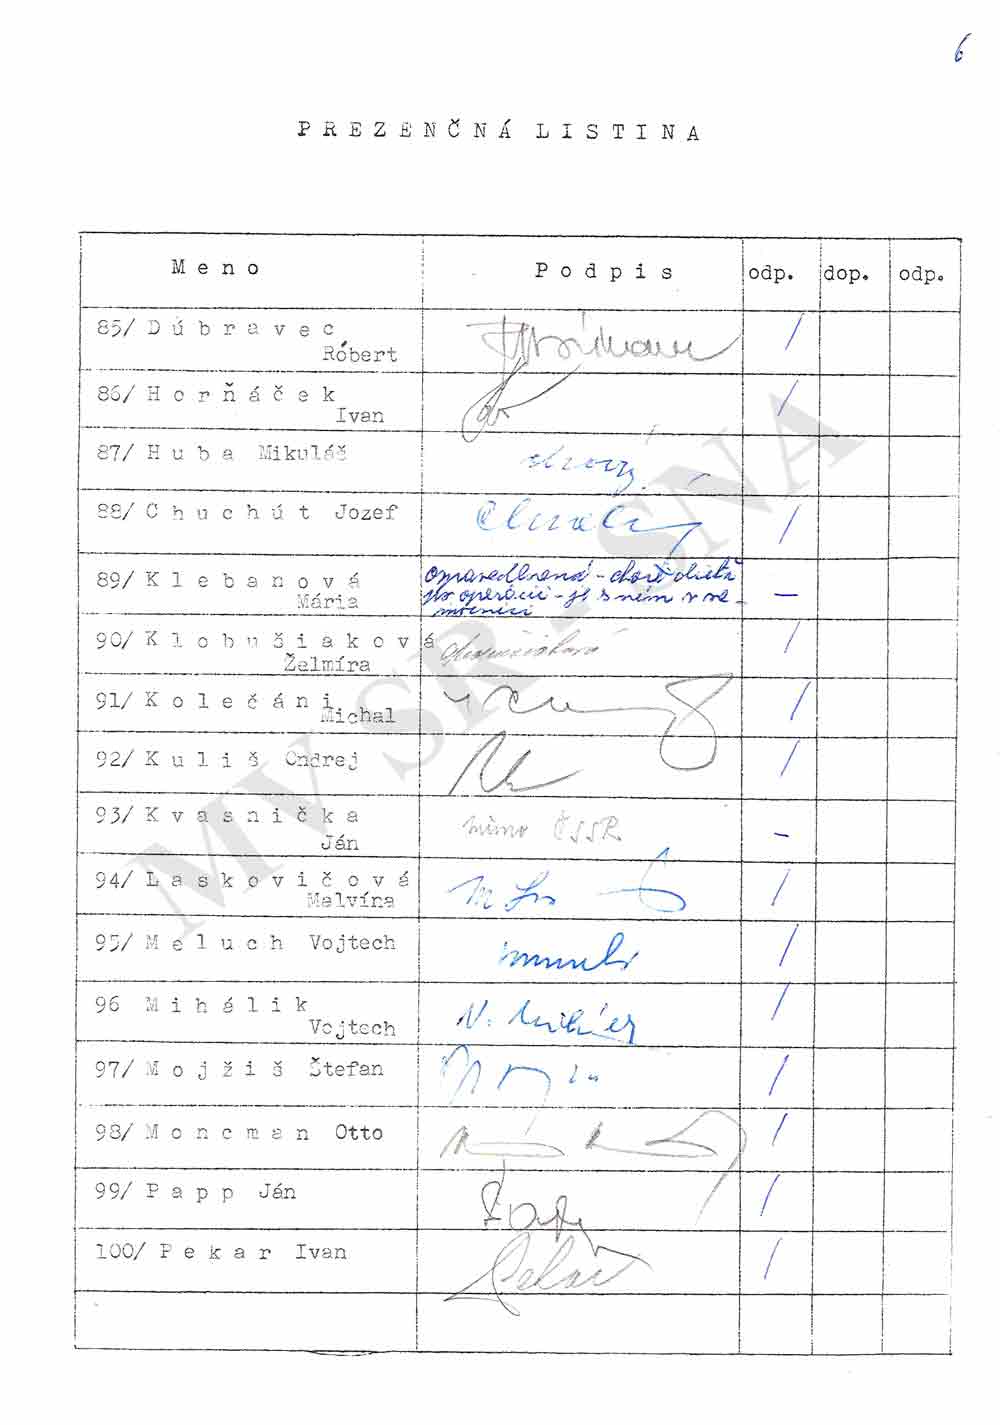 6
PREZENČNÁ LISTINA
Meno Podpis odp. dop. odp.
85/ Dúbravec
Róbert /
86/ Horňáček
Ivan /
87/ Huba Mikuláš /
88/ Chuchút Jozef /
89/ Klebanová ospravedlnená - choré dieťa
Mária po operácii - je s ním v ne- —
mocnici
90/ Klobušiaková /
Želmíra
91/ Kolečáni
Michal /
92/ Kuliš Ondrej /
93/ Kvasnička mimo ČSSR —
Ján
94/ Laskovičová
Malvína /
95/ Meluch Vojtech /
96 Mihálik /
Vojtech
97/ Mojžiš Štefan /
98/ Moncman Otto /
99/ Papp Ján /
100/ Pekar Ivan Pekar /
MV SR - SNA